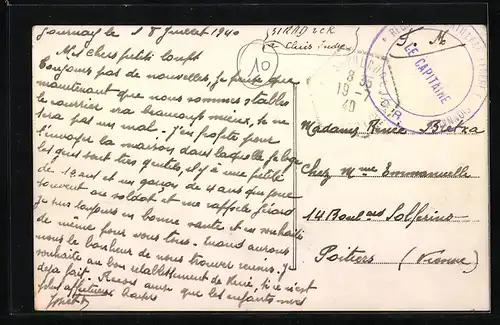 Journay le 18 Juillet 1940
Mes chers petits
Toujours pas de nouvelles, je pense que
maintenant que nous sommes stables
le courrier ira beaucoup mieux, ce ne
sera pas un mal. J'en profite pour
t'envoyer la maison dans laquelle je loge
les gens sont très gentils, il y a une petite
de 12 ans et un garçon de 4 ans qui joue
souvent au soldat et me rappelle Gérard
Je suis toujours en bonne santé et en souhaite
de même pour vous tous. Quand aurons
nous le bonheur de nous trouver réunis. Je
souhaite un bon rétablissement de René, si ce n'est
déjà fait. Recois ainsi que les enfants mes
plus affectueux baisers
10
LE CAPITAINE
19
40
F. M
Madame Renée
Chez Mme Emmanuelle
14 Boulard Solférino
Poitiers (Vienne)